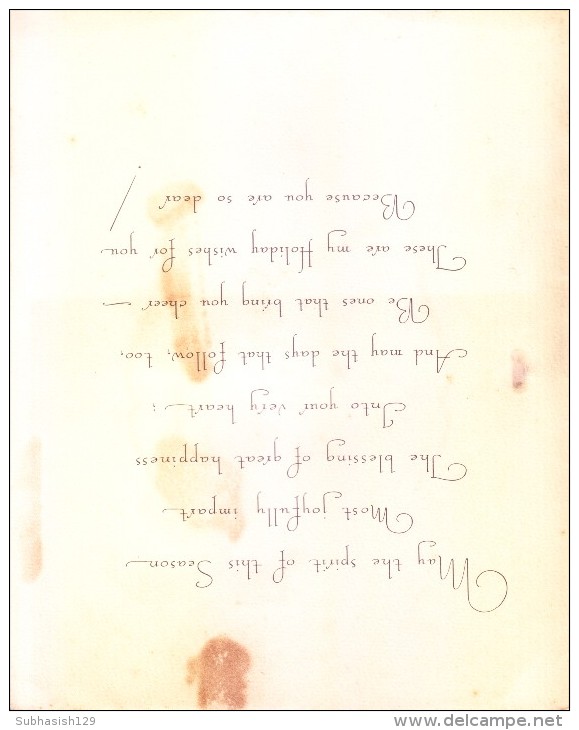 May the spirit of this Season
Most joyfully impart
The blessing of great happiness
Into your very heart;
And may the days that follow, too,
Be ones that bring you cheer —
These are my Holiday wishes for you
Because you are so dear!
Subhasish129
delcampe.net